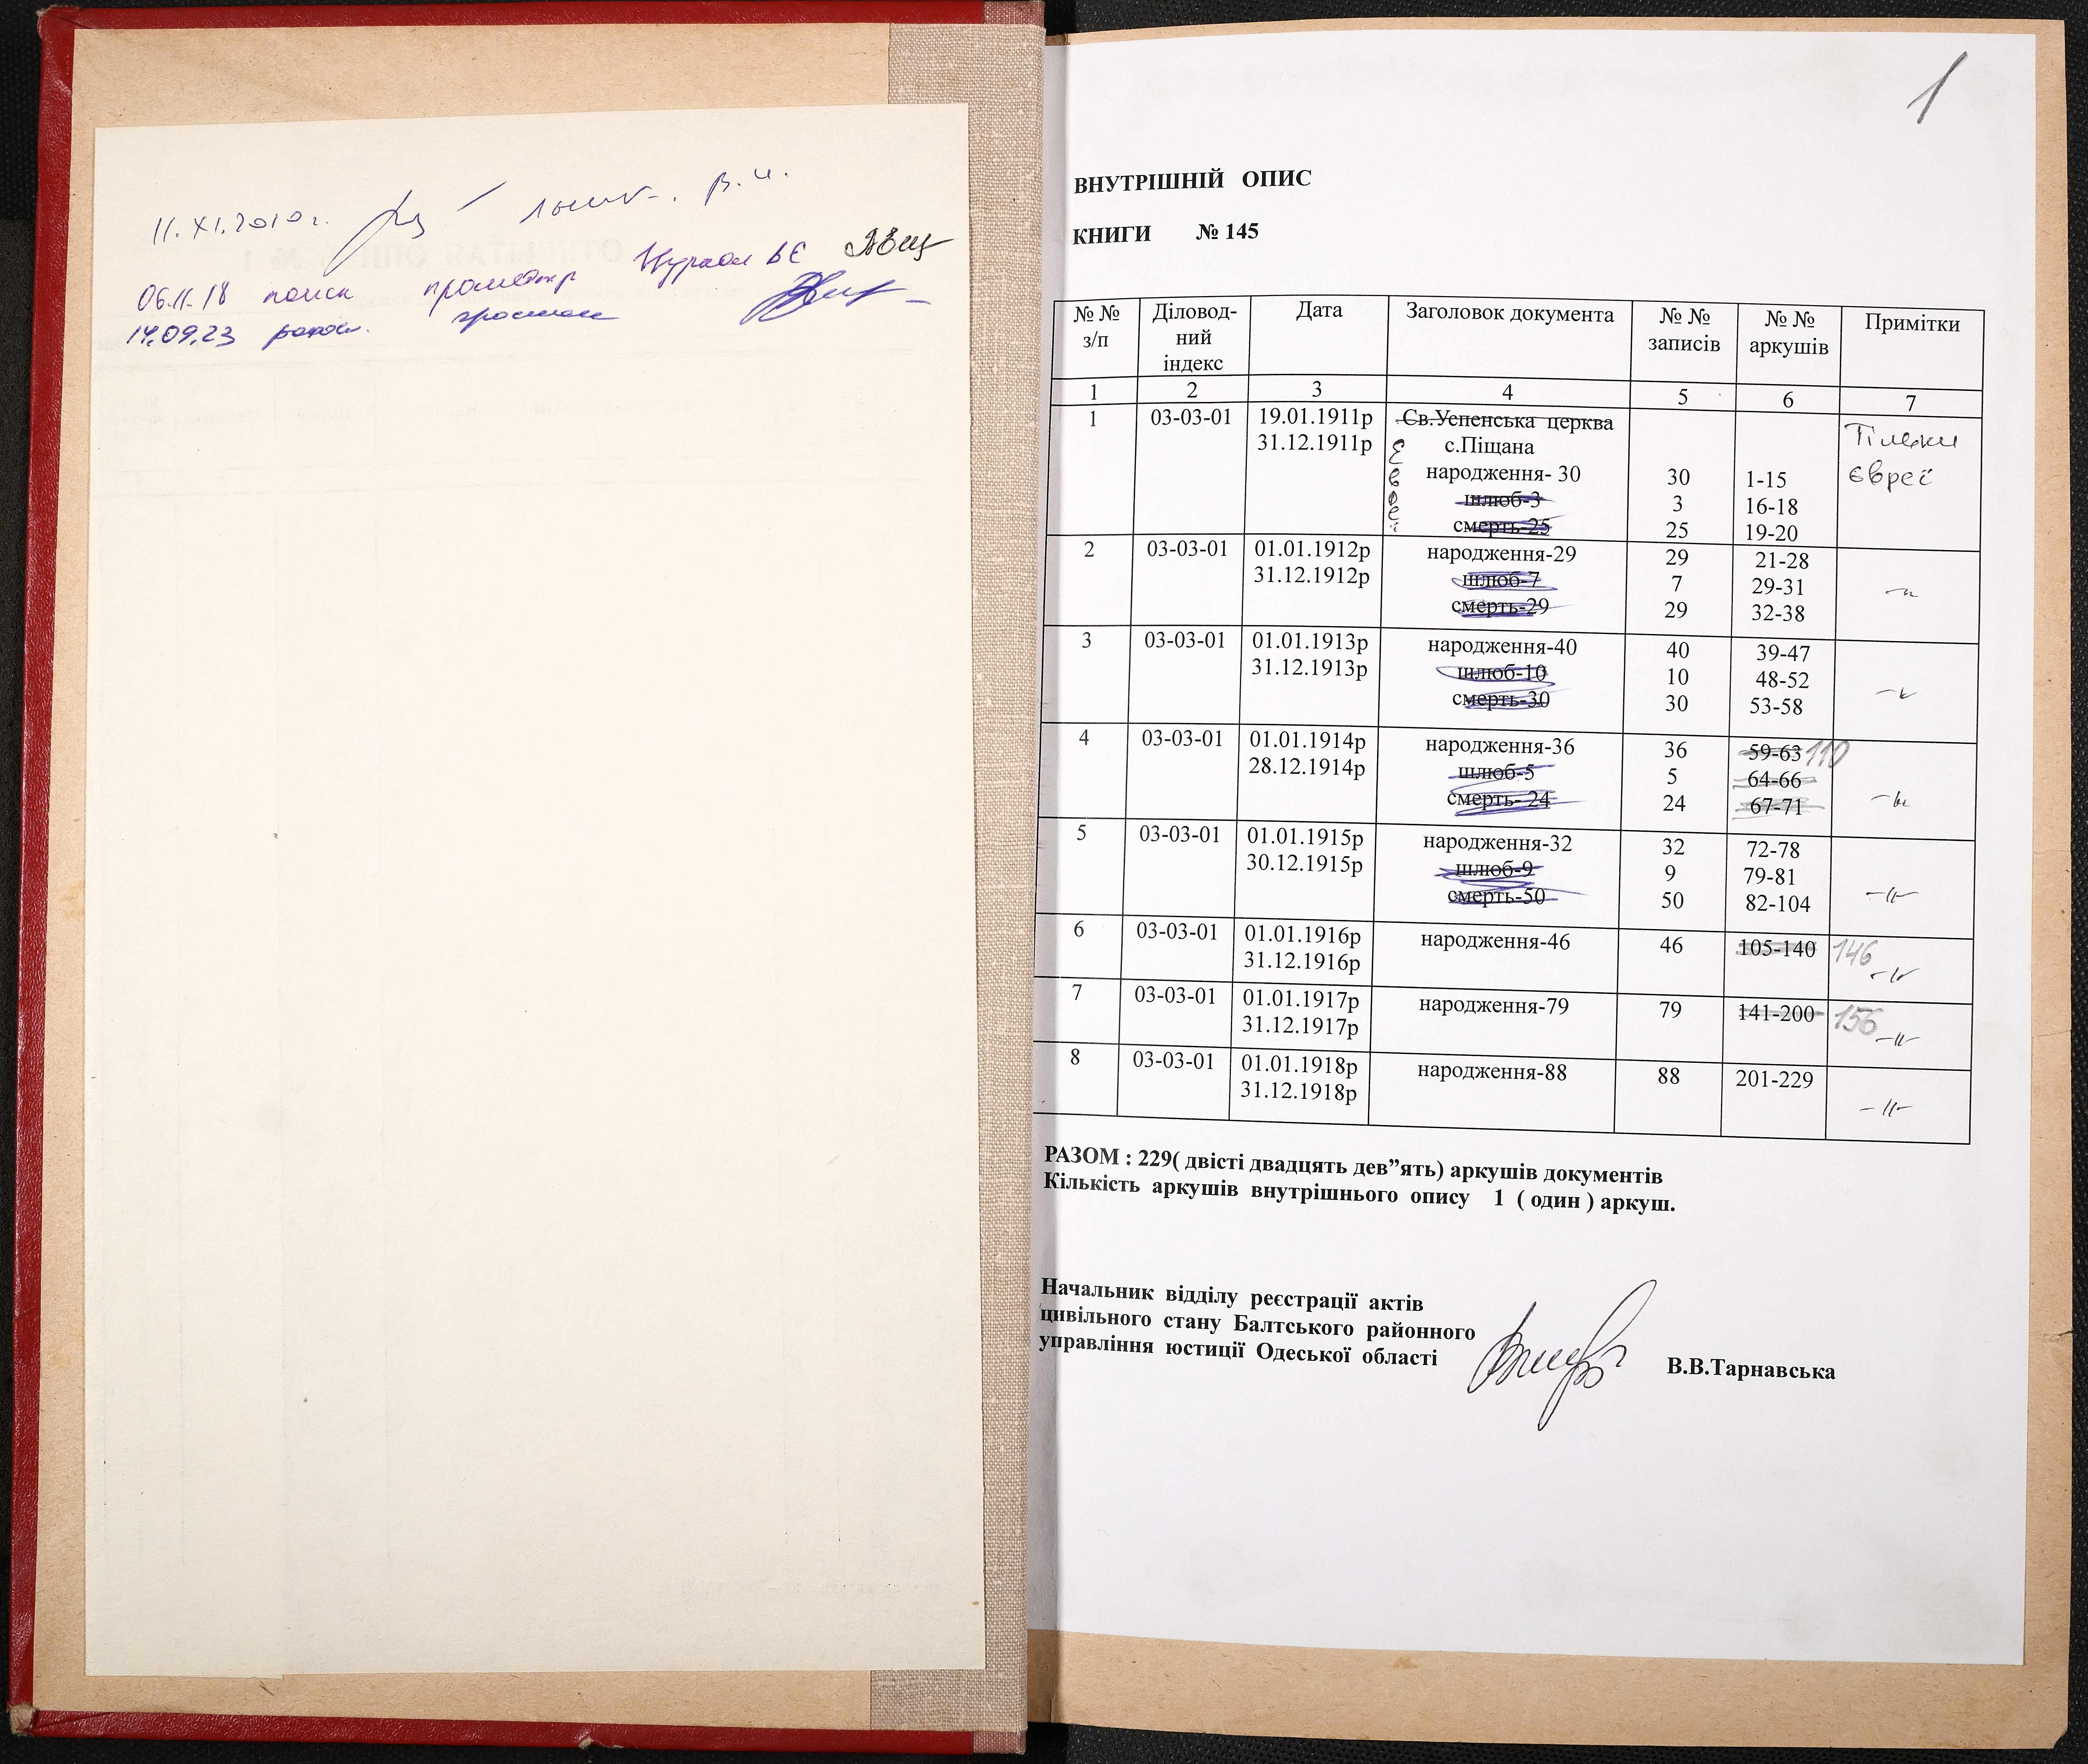 11.XI.2010г.
06.11.18 поиск
14.09.23
1
ВНУТРІШНІЙ ОПИС
КНИГИ № 145
№ № з/п Діловод-ний індекс Дата Заголовок документа № № записів № № аркушів Примітки
1 2 3 4 5 6 7
1 03-03-01 19.01.1911р Св.Успенська церква Тільки
31.12.1911р с.Піщана
Євреї
народження- 30 30 1-15 євреї
шлюб-3 3 16-18
смерть-25 25 19-20
2 03-03-01 01.01.1912р народження-29 29 21-28
31.12.1912р шлюб-7 7 29-31 -"-
смерть-29 29 32-38
3 03-03-01 01.01.1913р народження-40 40 39-47
31.12.1913р шлюб-10 10 48-52 -"-
смерть-30 30 53-58
4 03-03-01 01.01.1914р народження-36 36 59-63 110
28.12.1914р шлюб-5 5 64-66
смерть- 24 24 67-71 -"-
5 03-03-01 01.01.1915р народження-32 32 72-78
30.12.1915р шлюб-9 9 79-81
смерть-50 50 82-104 -"-
6 03-03-01 01.01.1916р народження-46 46 105-140 146
31.12.1916р -"-
7 03-03-01 01.01.1917р народження-79 79 141-200 156
31.12.1917р -"-
8 03-03-01 01.01.1918р народження-88 88 201-229
31.12.1918р -"-
РАЗОМ : 229( двісті двадцять дев”ять) аркушів документів
Кількість аркушів внутрішнього опису 1 ( один ) аркуш.
Начальник відділу реєстрації актів
цивільного стану Балтського районного
управління юстиції Одеської області В.В.Тарнавська